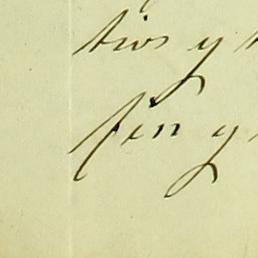 tivos y
fin y